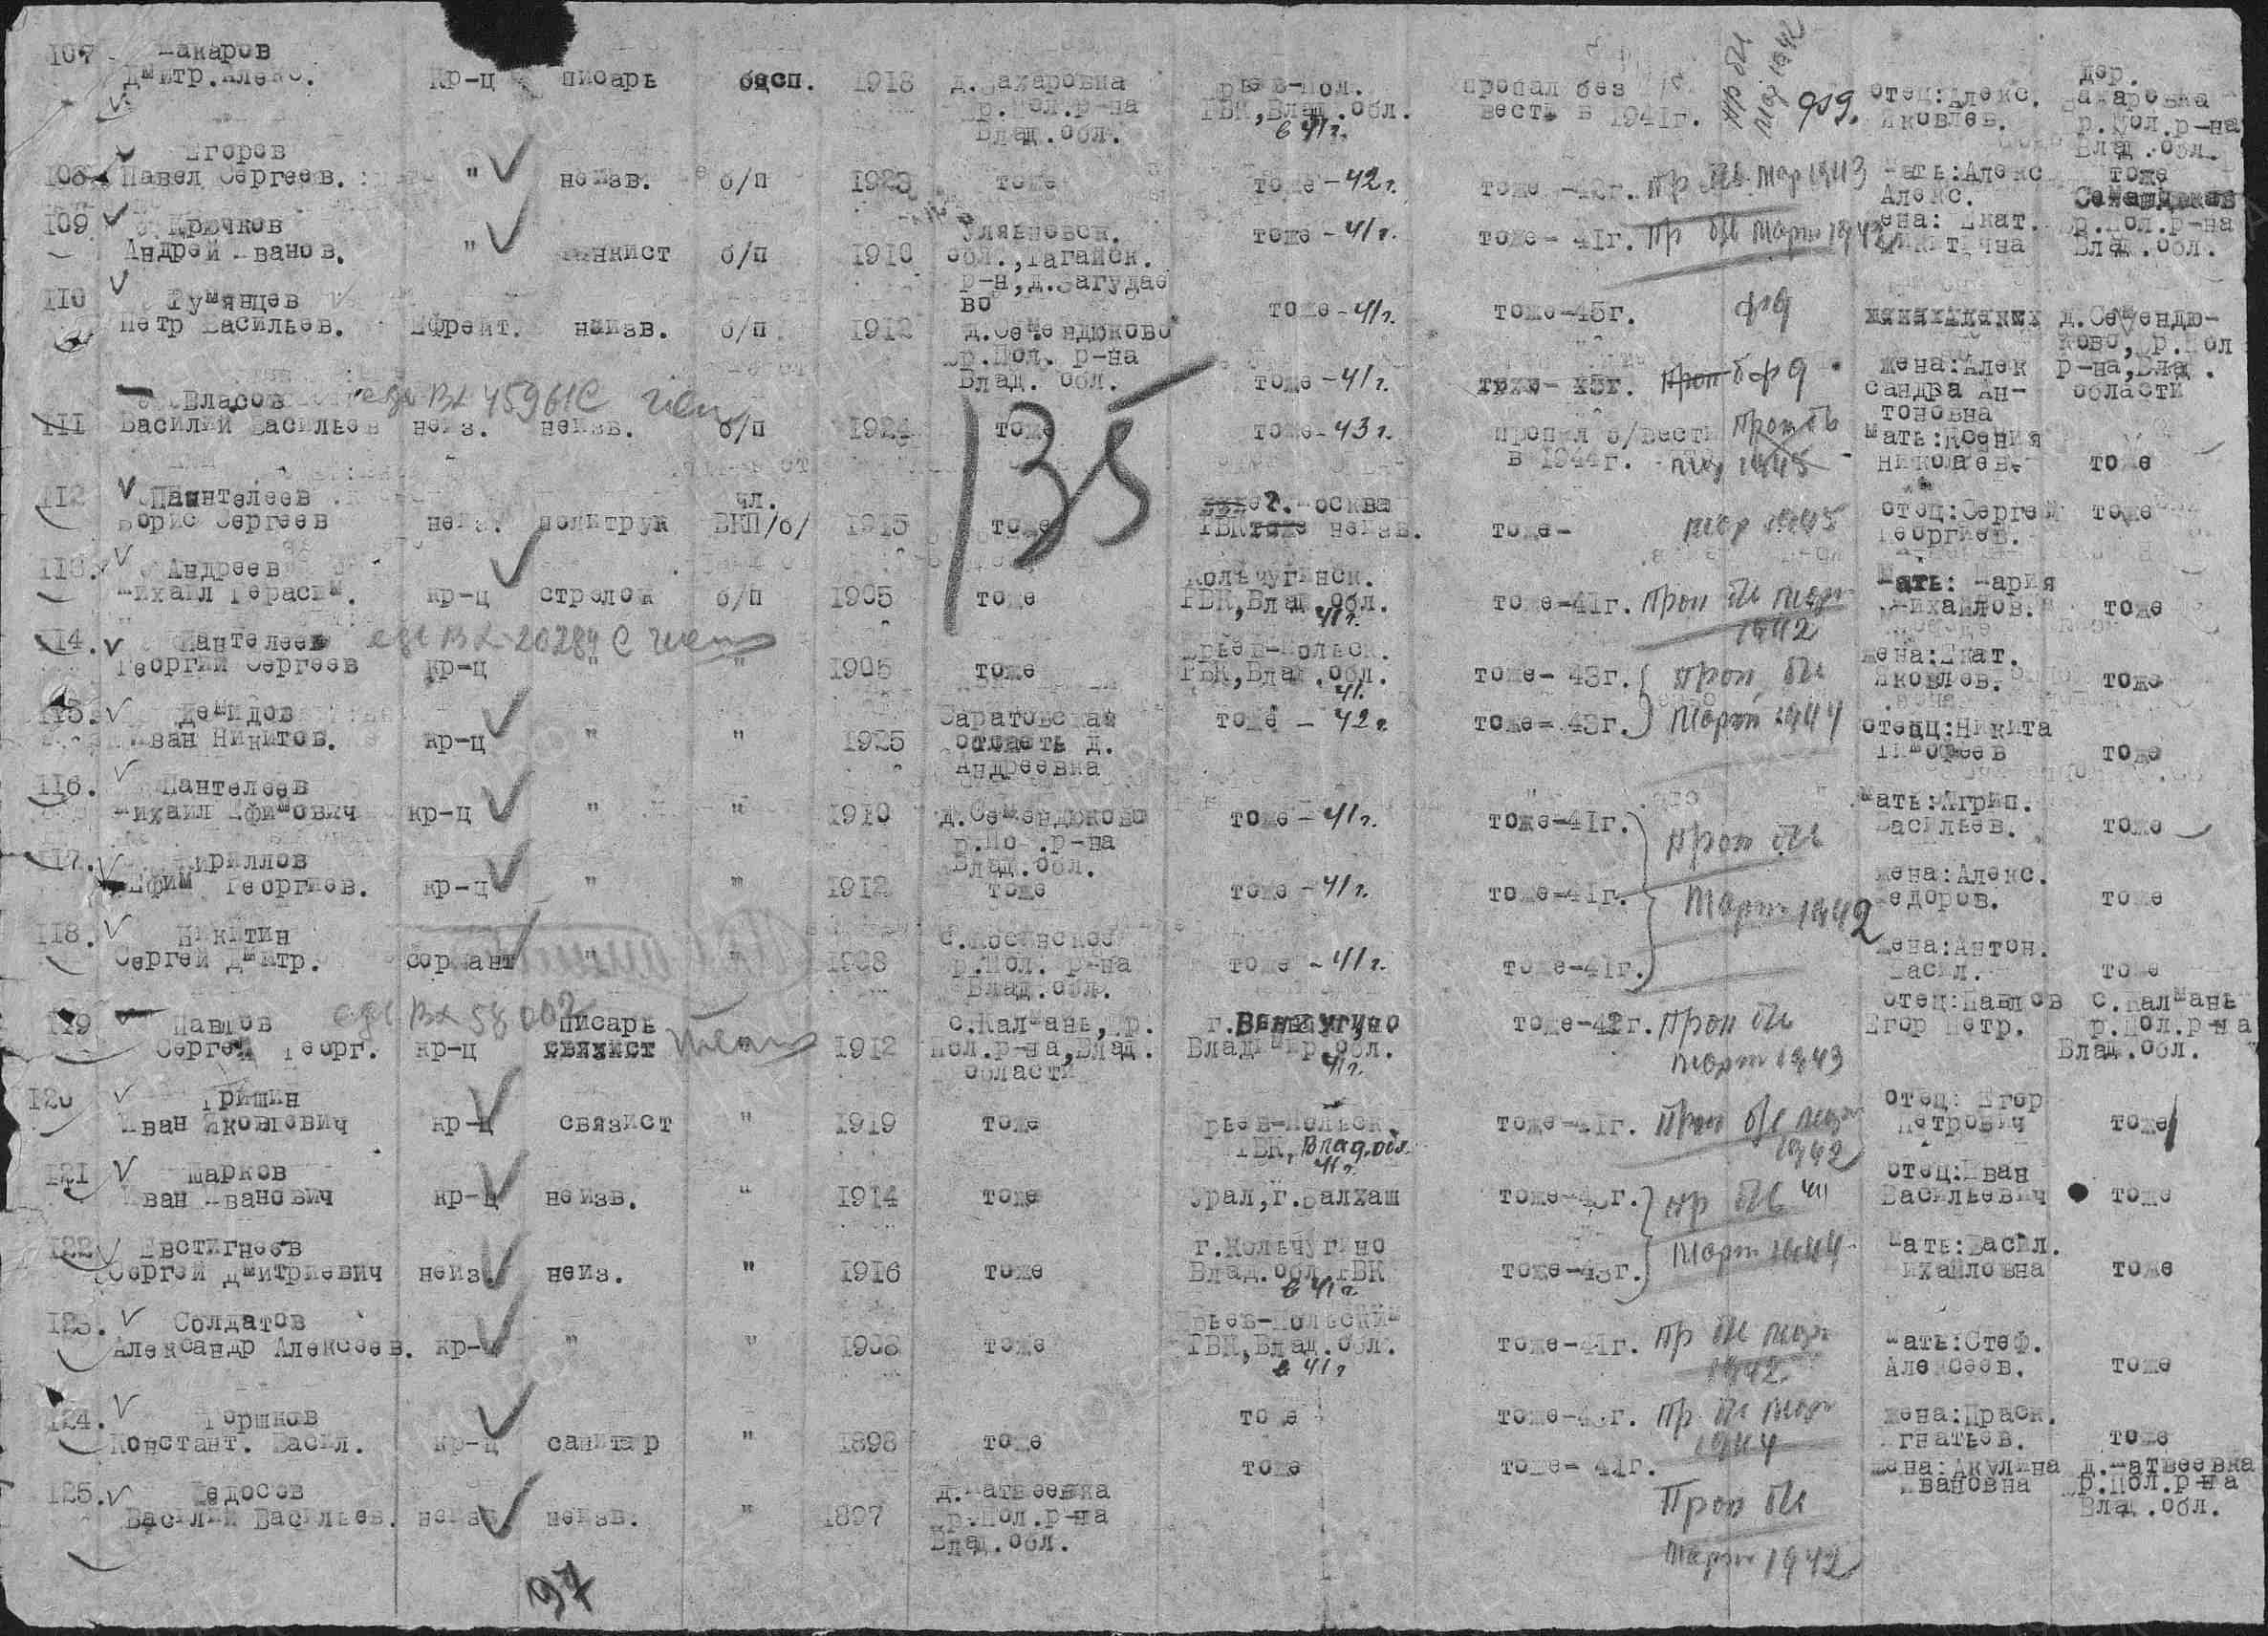 107 Макаров
Дмитр.Алекс. Кр-ц писарь бесп. 1918 д.Захаровка
р.Пол.р-на
Влад.обл. рьев-Пол.
РВК,Влад.обл.
в 41г. пропал без
весть в 1941г. отец:Алекс.
Яковлев. дер.
Захаровка
р.Пол.р-на
Влад.обл.
Егоров
108 Павел Сергеев. " неизв. б/п 1923 тоже тоже -42г. тоже -42г. пр б/в мар 1943 мать:Алекс
Алекс. тоже
109 Крючков
Андрей Иванов. " танкист б/п 1910 Ульяновск.
обл.,Тагайск.
р-н,д.Загудае
во тоже - 41г. тоже - 41г. пр б/в март 1942 жена: Екат.
Никитична р.Пол.р-на
Влад.обл.
110 Румянцев
Петр Васильев. Ефрейт. неизв. б/п 1912 д.Семендюково
р.Пол. р-на
Влад. обл. тоже -41г. тоже-45г. жена:Алек
сандра Ан-
тоновна д.Семендю-
ково, р.Пол
р-на,Влад.
области
тоже -41г.
111 Власов
Василий Васильев неиз. неизв. б/п 1924 тоже тоже-43г. пропал б/вести
в 1944г. мать:Ксения
Николаев. тоже
112 Пантелеев
Борис Сергеев неиз. политрук чл.
ВКП/б/ 1915 тоже г.Москва
РВК неизв. тоже- мар 1945 отец:Сергей
Георгиев. тоже
113. Андреев
Михаил Герасим. кр-ц стрелок б/п 1905 тоже Кольчугинск.
РВК,Влад.обл.
41г. тоже-41г. проп б/в март
1942 мать: Мария
Михайлов. тоже
114. Пантелеев
Георгий Сергеев кр-ц " " 1905 тоже рьев-Польск.
РВК,Влад.обл.
41. тоже- 43г. проп б/в жена:Екат.
Яковлев. тоже
115. Демидов
Иван Никитов. кр-ц " " 1925 Саратовская
область д.
Андреевка тоже - 42г. тоже- 43г. март 1944 отецц:Никита
Тимофеев тоже
116. Пантелеев
Михаил Ефимович кр-ц " " 1910 д.Семендюково
р.По .р-на
Влад.обл. тоже - 41г. тоже-41г. проп б/в мать:Агрип.
Васильев. тоже
117. Кириллов
Ефим Георгиев. кр-ц " " 1912 тоже тоже -41г. тоже-41г. март 1942 жена:Алекс.
Федоров. тоже
118. Никитин
Сергей Дмитр. сержант " " 1908 р.Пол. р-на
Влад.обл. тоже -41г. тоже-41г. жена:Антон.
Васил. тоже
119 Павлов
Сергей Георг. кр-ц писарь
связист 1912 с.Калмань, р.
Пол.р-на,Влад.
области Владимир.обл.
41г. тоже-42г. проп б/в
март 1943 отец:Павлов
Егор Петр. с.Калмань
р.Пол.р-на
Влад.обл.
120 Гришин
Иван Яковлевич кр-ц связист " 1919 тоже рьев-Польск.
РВК, Влад.обл.
41г. тоже-41г. проп б/в март
1942 отец: Егор
Петрович тоже
121 Шарков
Иван Иванович кр-ц неизв. " 1914 тоже Урал,г.Балхаш тоже-43г. пр б/в отец:Иван
Васильевич тоже
122 Евстигнеев
Сергей Дмитриевич неиз. неиз. " 1916 тоже г.Кольчугино
Влад.обл.РВК
в 41г. тоже-43г. март 1944 мать:Васил.
Михайловна тоже
123. Солдатов
Александр Алексеев. кр-ц " " 1908 тоже рьев-Польский
РВК,Влад.обл.
в 41г тоже-41г. пр б/в март
1942 мать:Стеф.
Алексеев. тоже
124. Горшков
Констант. Васил. кр-ц санитар " 1898 тоже тоже тоже-43г. пр б/в март
1944 жена:Праск.
Игнатьев. тоже
125. Федосов
Василий Васильев. неизв неизв. " 1897 д.Матвеевка
р.Пол.р-на
Влад.обл. тоже тоже- 41г. Проп б/в
март 1942 жена:Акулина
Ивановна д.Матвеевка
р.Пол.р-на
Влад.обл.
135
97